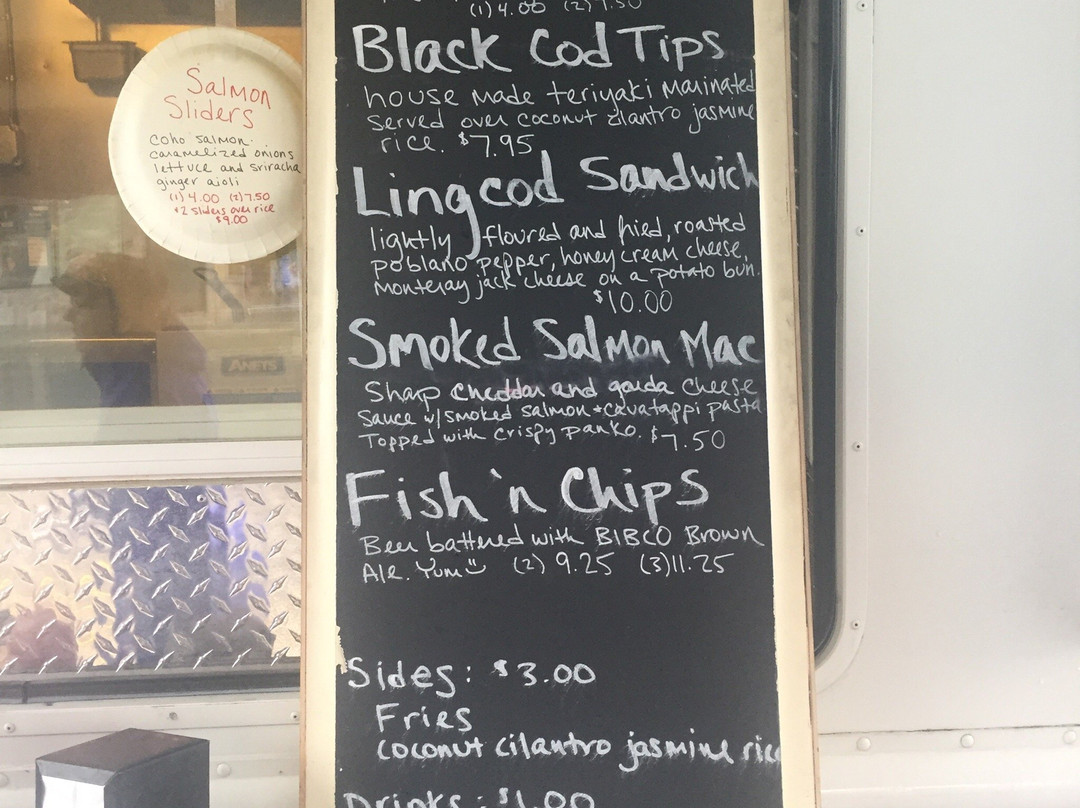 Salmon
Sliders
Coho salmon.
caramelized onions
lettuce and sriracha
ginger aioli
(1) 4.00 (2) 7.50
*2 sliders over rice
$9.00
ANETS
(1) 4.00 (2) 7.50
Black Cod Tips
house made teriyaki marinated
served over coconut cilantro jasmine
rice. $7.95
Lingcod Sandwich
lightly floured and fried, roasted
poblano pepper, honey cream cheese,
Monteray jack cheese on a potato bun.
$10.00
Smoked Salmon Mac
Sharp Cheddar and gouda cheese
Sauce w/ smoked salmon + cavatappi pasta
Topped with crispy panko. $7.50
Fish 'n Chips
Beer battered with BIBCO Brown
Ale. Yum (2) 9.25 (3) 11.25
Sides: $3.00
Fries
coconut cilantro jasmine rice
Drinks: $1.00